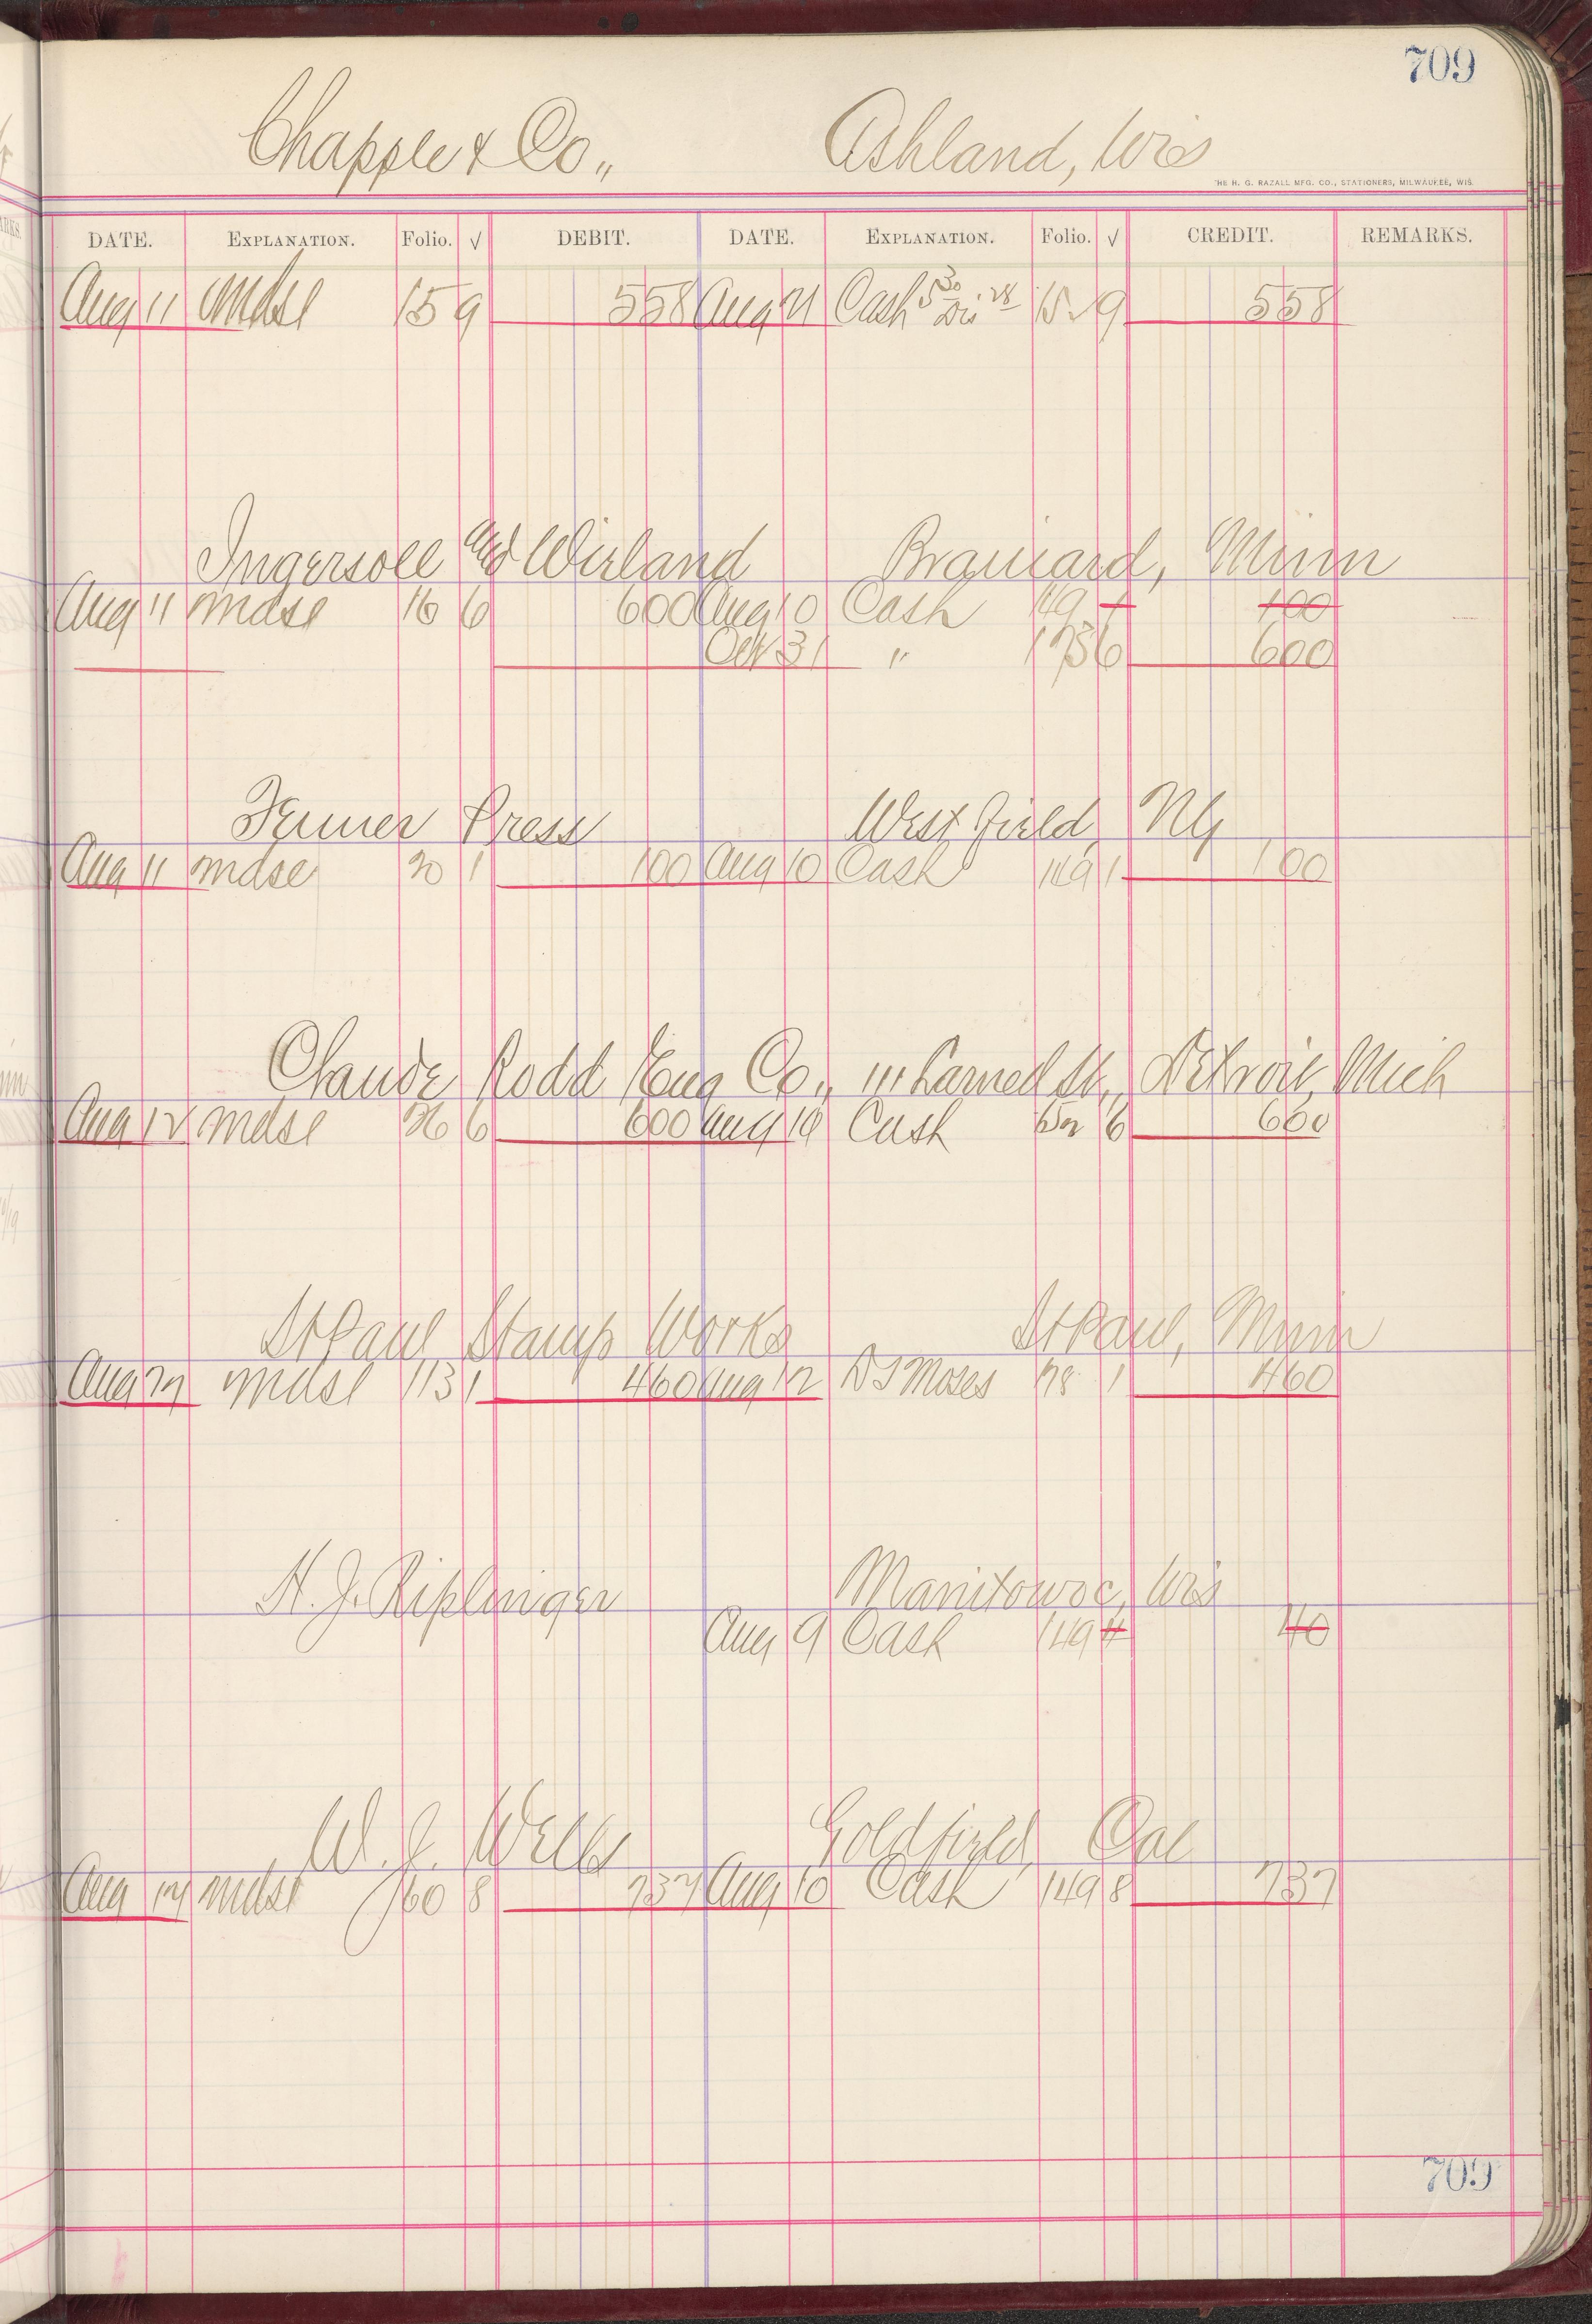 709
Chapple & Co., Ashland, Wis
THE H. G. RAZALL MFG. CO., STATIONERS, MILWAUKEE, WIS.
DATE. EXPLANATION. Folio. √ DEBIT. DATE. EXPLANATION. Folio. √ CREDIT. REMARKS.
Aug 11 Mdse 15 9 558 Aug 21 Cash 5 30 Dis 28 152 9 558
Ingersoll and Wieland Brainard, Minn
Aug 11 Mdse 16 6 600 Aug 10 Cash 149 1 100
Oct 31 " 175 6 600
Fenner Press Westfield, NY
Aug 11 Mdse 20 1 100 Aug 10 Cash 149 1 100
Claude Rodd Eng Co., 111 Larned St., Detroit, Mich
Aug 12 Mdse 26 6 600 Aug 19 Cash 152 6 600
St Paul Stamp Works St Paul, Minn
Aug 27 Mdse 113 1 460 Aug 12 D S Moses 78 1 460
H. J. Riplinger Manitowoc, Wis
Aug 9 Cash 149 4 40
W. J. Wells Goldfield, Cal
Aug 17 Mdse 60 8 737 Aug 10 Cash 149 8 737
709